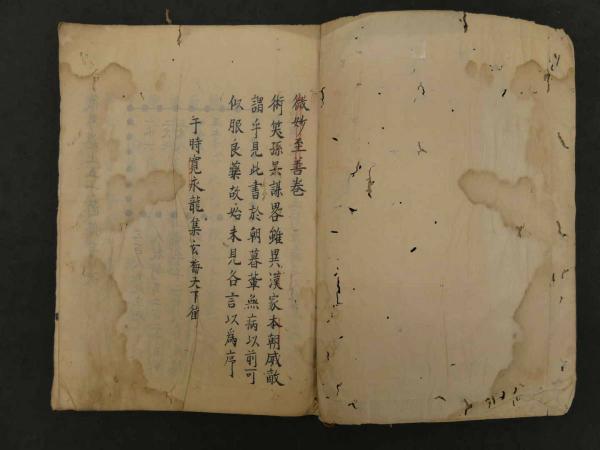 微妙至善巻
術笑孫呉謀畧雖異漢家本朝威敵
謂乎見此書於朝暮輩無病以前可
似服良薬故始末見各言以為序
于時寛永龍集玄
天下